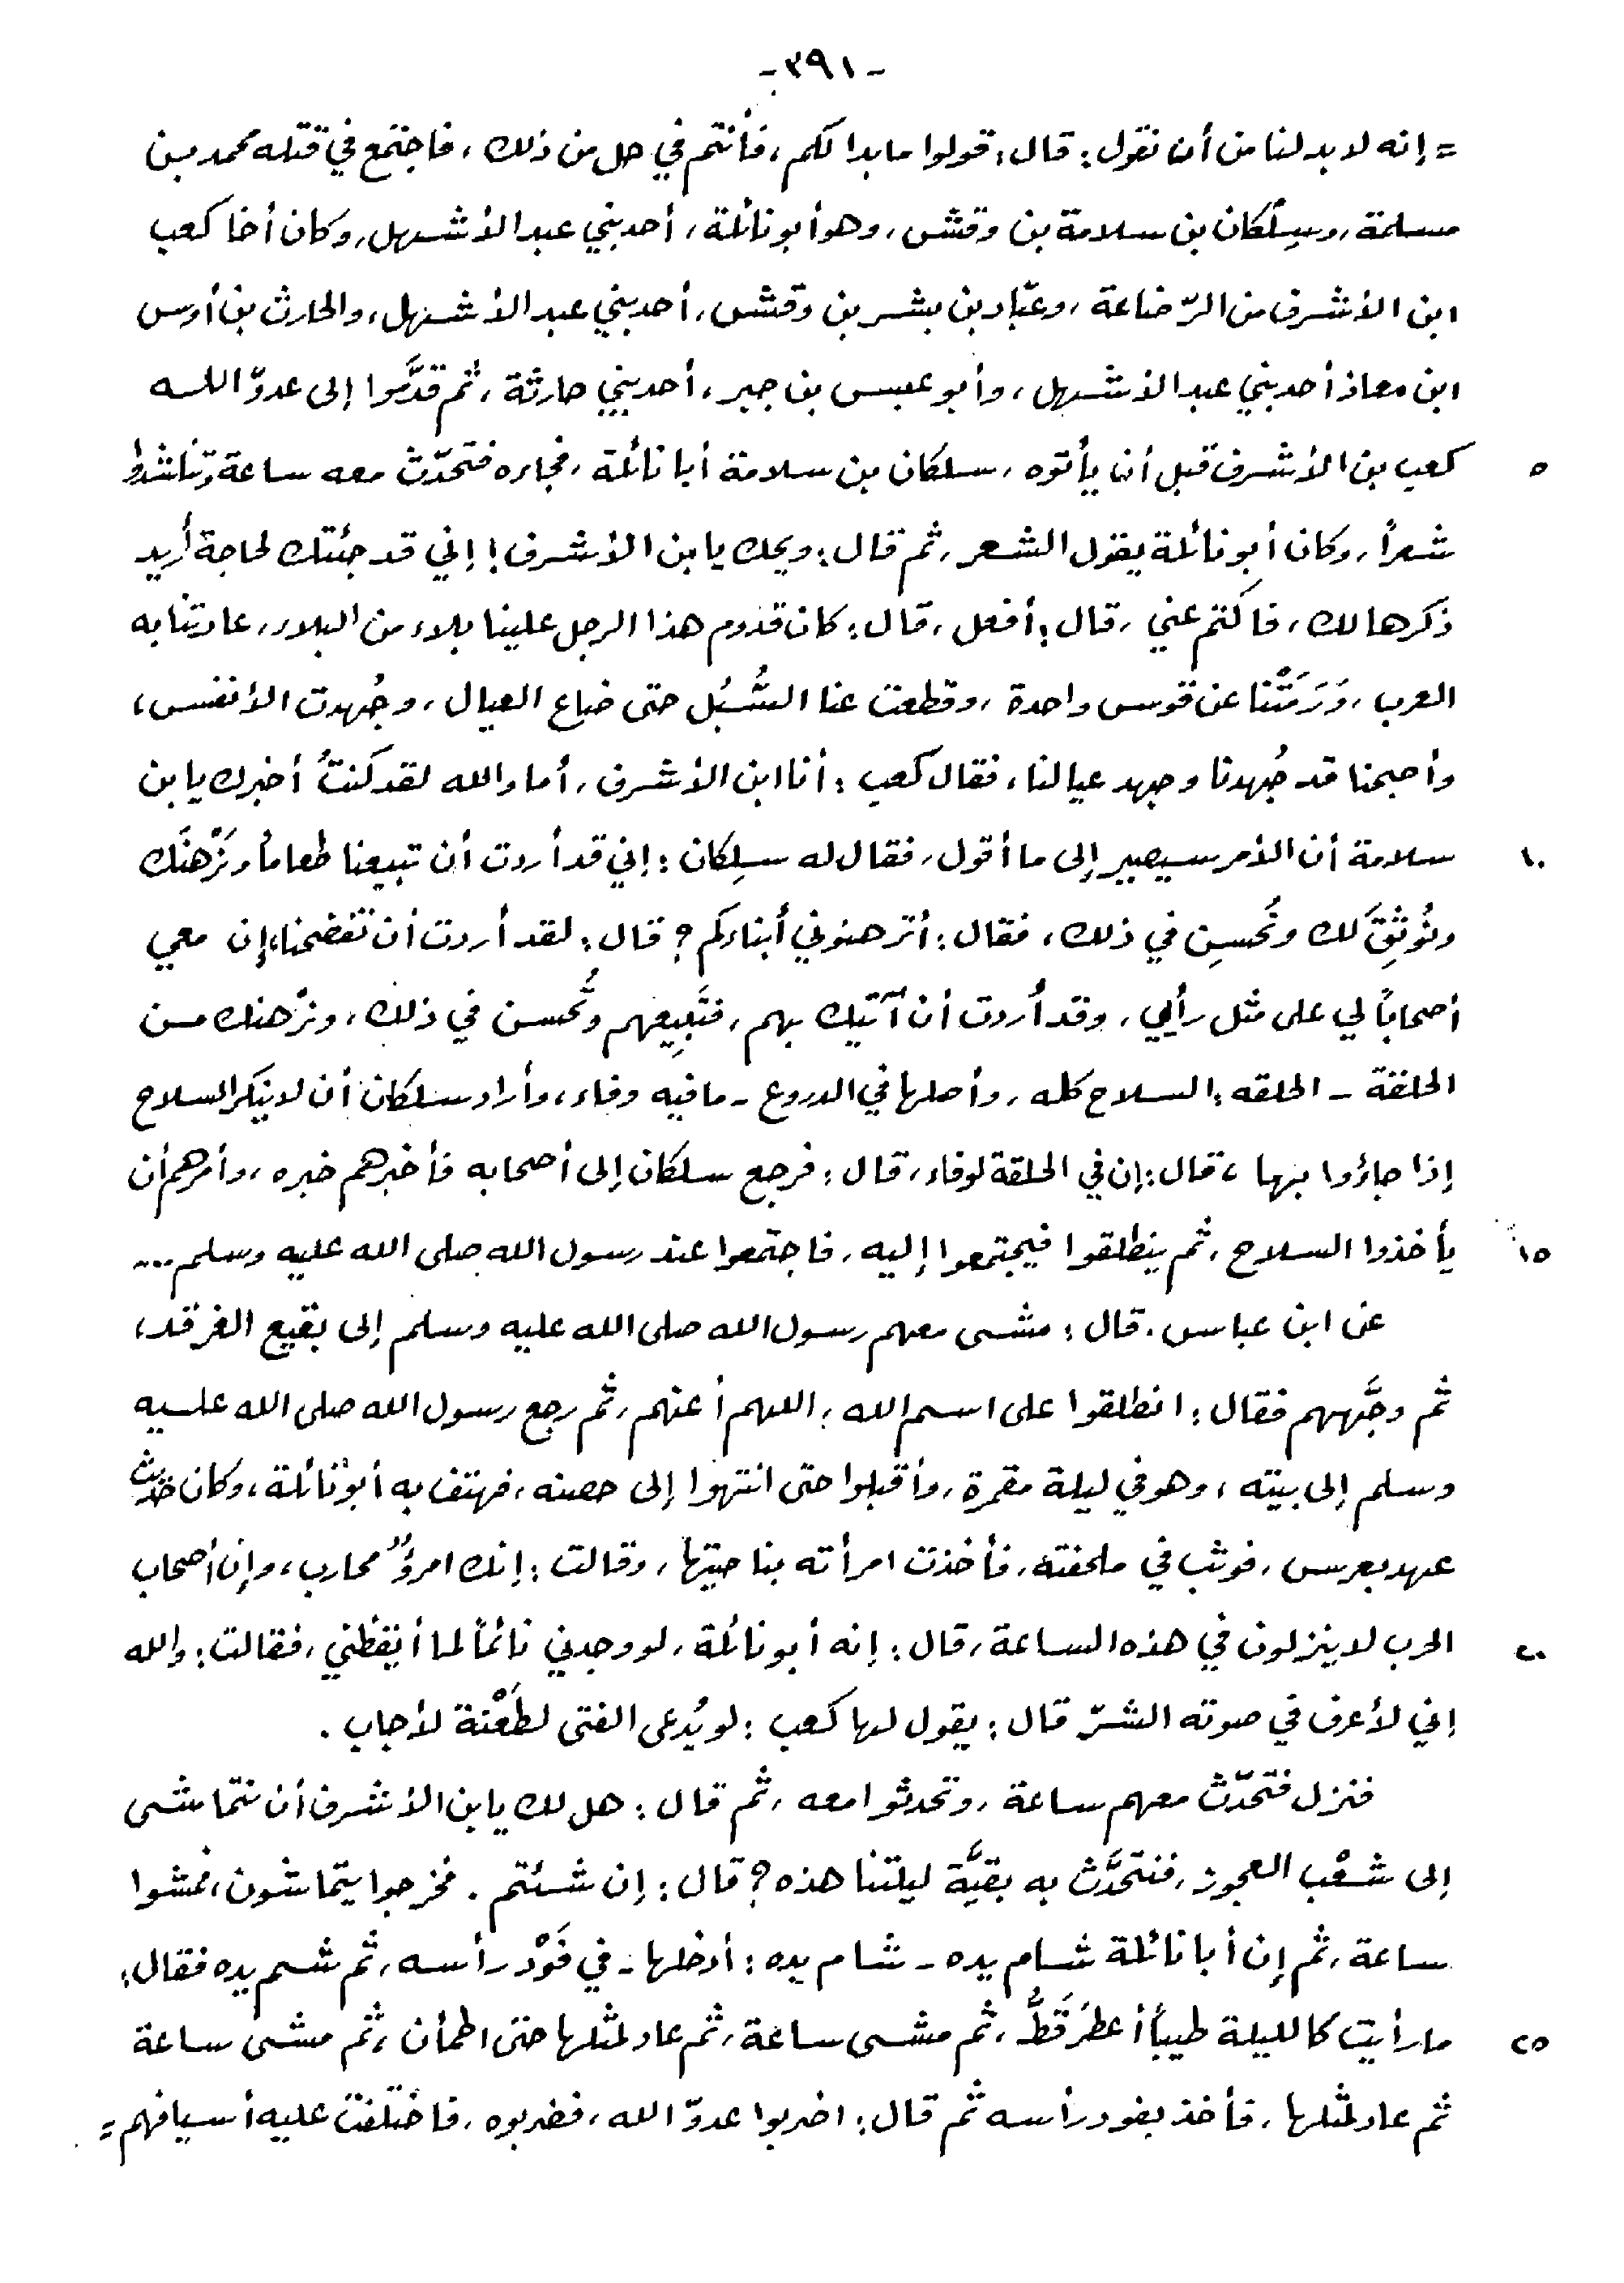 -٣٩١-
= إنه لا بد لنا من أن نقول: قال: قولوا ما بدا لكم، فأنتم في حل من ذلك، فاجتمع في قتله محمد بن
مسلمة، وسِلْكان بن سلامة بن وقش، وهو أبو نائلة، أحد بني عبد الأشهل، وكان أخا كعب
ابن الأشرف من الرّضاعة، وعبّاد بن بشر بن وقش، أحد بني عبد الأشهل، والحارث بن أوس
ابن معاذ أحد بني عبد الأشهل، وأبو عبس بن جبر، أحد بني حارثة، ثم قدَّموا إلى عدوّ الله
٥ كعب بن الأشرف قبل أن يأتوه، سلكان بن سلامة أبا نائلة، فجاءه فتحدّث معه ساعة وتناشدوا
شعراً، وكان أبو نائلة يقول الشعر، ثم قال: ويحك يا بن الأشرف! إني قد جئتك لحاجة أريد
ذكرها لك، فاكتم عني، قال: أفعل، قال: كان قدوم هذا الرجل علينا بلاء من البلاء، عادتنا به
العرب، وَرَمَتْنا عن قوس واحدة، وقطعت عنا السُّبُل حتى ضاع العيال، وجُهدت الأنفس،
وأصبحنا قد جُهدنا وجهد عيالنا، فقال كعب: أنا ابن الأشرف، أما والله لقد كنتُ أخبرك يا بن
١٠ سلامة أن الأمر سيصير إلى ما أقول، فقال له سِلكان: إني قد أردت أن تبيعنا طعاماً ونَرْهنَك
ونُوثِقَ لك ونُحسِن في ذلك، فقال: أترهنوني أبناءكم؟ قال: لقد أردت أن تفضحنا، إن معي
أصحاباً لي على مثل رأيي، وقد أردت أن آتيك بهم، فتَبِيعهم ونُحسن في ذلك، ونرْهنك من
الحلقة - الحلقه: السلاح كله، وأصلها في الدروع - ما فيه وفاء، وأراد سلكان أن لا ينكر السلاح
إذا جاؤوا بها، قال: إن في الحلقة لوفاء، قال: فرجع سلكان إلى أصحابه فأخبرهم خبره، وأمرهم أن
١٥ يأخذوا السلاح، ثم ينطلقوا فيجتمعوا إليه، فاجتمعوا عند رسول الله صلى الله عليه وسلم ...
عن ابن عباس. قال: مشى معهم رسول الله صلى الله عليه وسلم إلى بقيع الغرقد،
ثم وجَّههم فقال: انطلقوا على اسم الله: اللهم أعنهم، ثم رجع رسول الله صلى الله عليه
وسلم إلى بيته، وهو في ليلة مقمرة، وأقبلوا حتى انتهوا إلى حصنه، فهتف به أبو نائلة، وكان حديث
عهد بعرس، فوثب في ملحفته، فأخذت امرأته بناحيتها، وقالت: إنك امرؤٌ محارب، وإن أصحاب
٢٠ الحرب لا ينزلون في هذه الساعة، قال: إنه أبو نائلة، لو وجدني نائماً لما أيقظني، فقالت: والله
إني لأعرف في صوته الشرّ قال: يقول لها كعب: لو يُدعى الفتى لطَعْنة لأجاب.
فنزل فتحدّث معهم ساعة، وتحدثوا معه، ثم قال: هل لك يا بن الأشرف أن نتماشى
إلى شعْب العجوز، فنتحدَّث به بقيَّة ليلتنا هذه؟ قال: إن شئتم. فخرجوا يتماشون، فمشوا
ساعة، ثم إن أبا نائلة شام يده - شام يده: أدخلها - في فَوْد رأسه، ثم شم يده فقال:
٢٥ ما رأيت كالليلة طيباً أعطَرَ قَطُّ، ثم مشى ساعة، ثم عاد لمثلها حتى اطمأن، ثم مشى ساعة
ثم عاد لمثلها، فأخذ بفود رأسه ثم قال: اضربوا عدوّ الله، فضربوه، فاختلفت عليه أسيافهم =